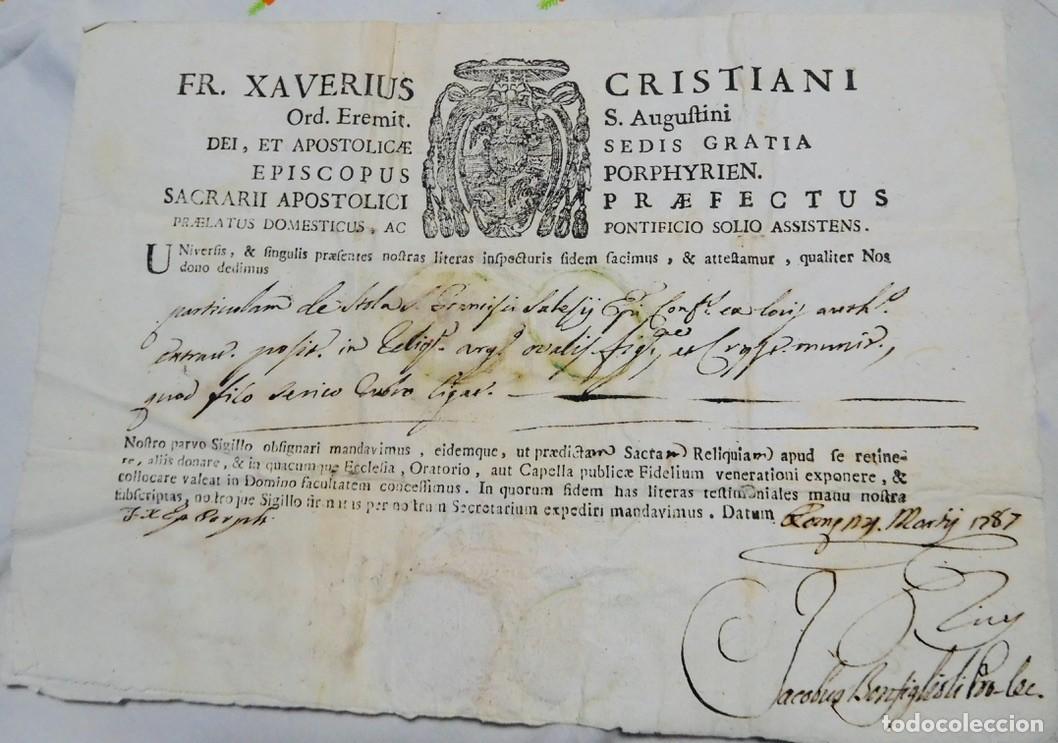 FR. XAVERIUS CRISTIANI
Ord. Eremit. S. Auguſtini
DEI, ET APOSTOLICÆ SEDIS GRATIA
EPISCOPUS PORPHYRIEN.
SACRARII APOSTOLICI PRÆFECTUS
PRÆLATUS DOMESTICUS, AC PONTIFICIO SOLIO ASSISTENS.
UNiverſis, & ſingulis præſentes noſtras literas inſpecturis fidem facimus, & atteſtamur, qualiter Nos
dono dedimus
particulam de Stola S. Francisci Salesij Epi Conf. ex locis auth.
extrac. posit. in Reliq. arg. ovalis fig. et Cryst. munit.,
quod filo serico rubro ligat.
Noſtro parvo Sigillo obſignari mandavimus, eidemque, ut prædictam Sacram Reliquiam apud ſe retine-
re, aliis donare, & in quacumque Eccleſia, Oratorio, aut Capella publicæ Fidelium venerationi exponere, &
collocare valeat in Domino facultatem conceſſimus. In quorum fidem has literas teſtimoniales manu noſtra
ſubſcriptas, noſtroque Sigillo firmatas per noſtrum Secretarium expediri mandavimus. Datum Romæ Martij 1787
F X Ep Porph.
Jacobus Bonfiglioli Pro-Sec.
todocoleccion